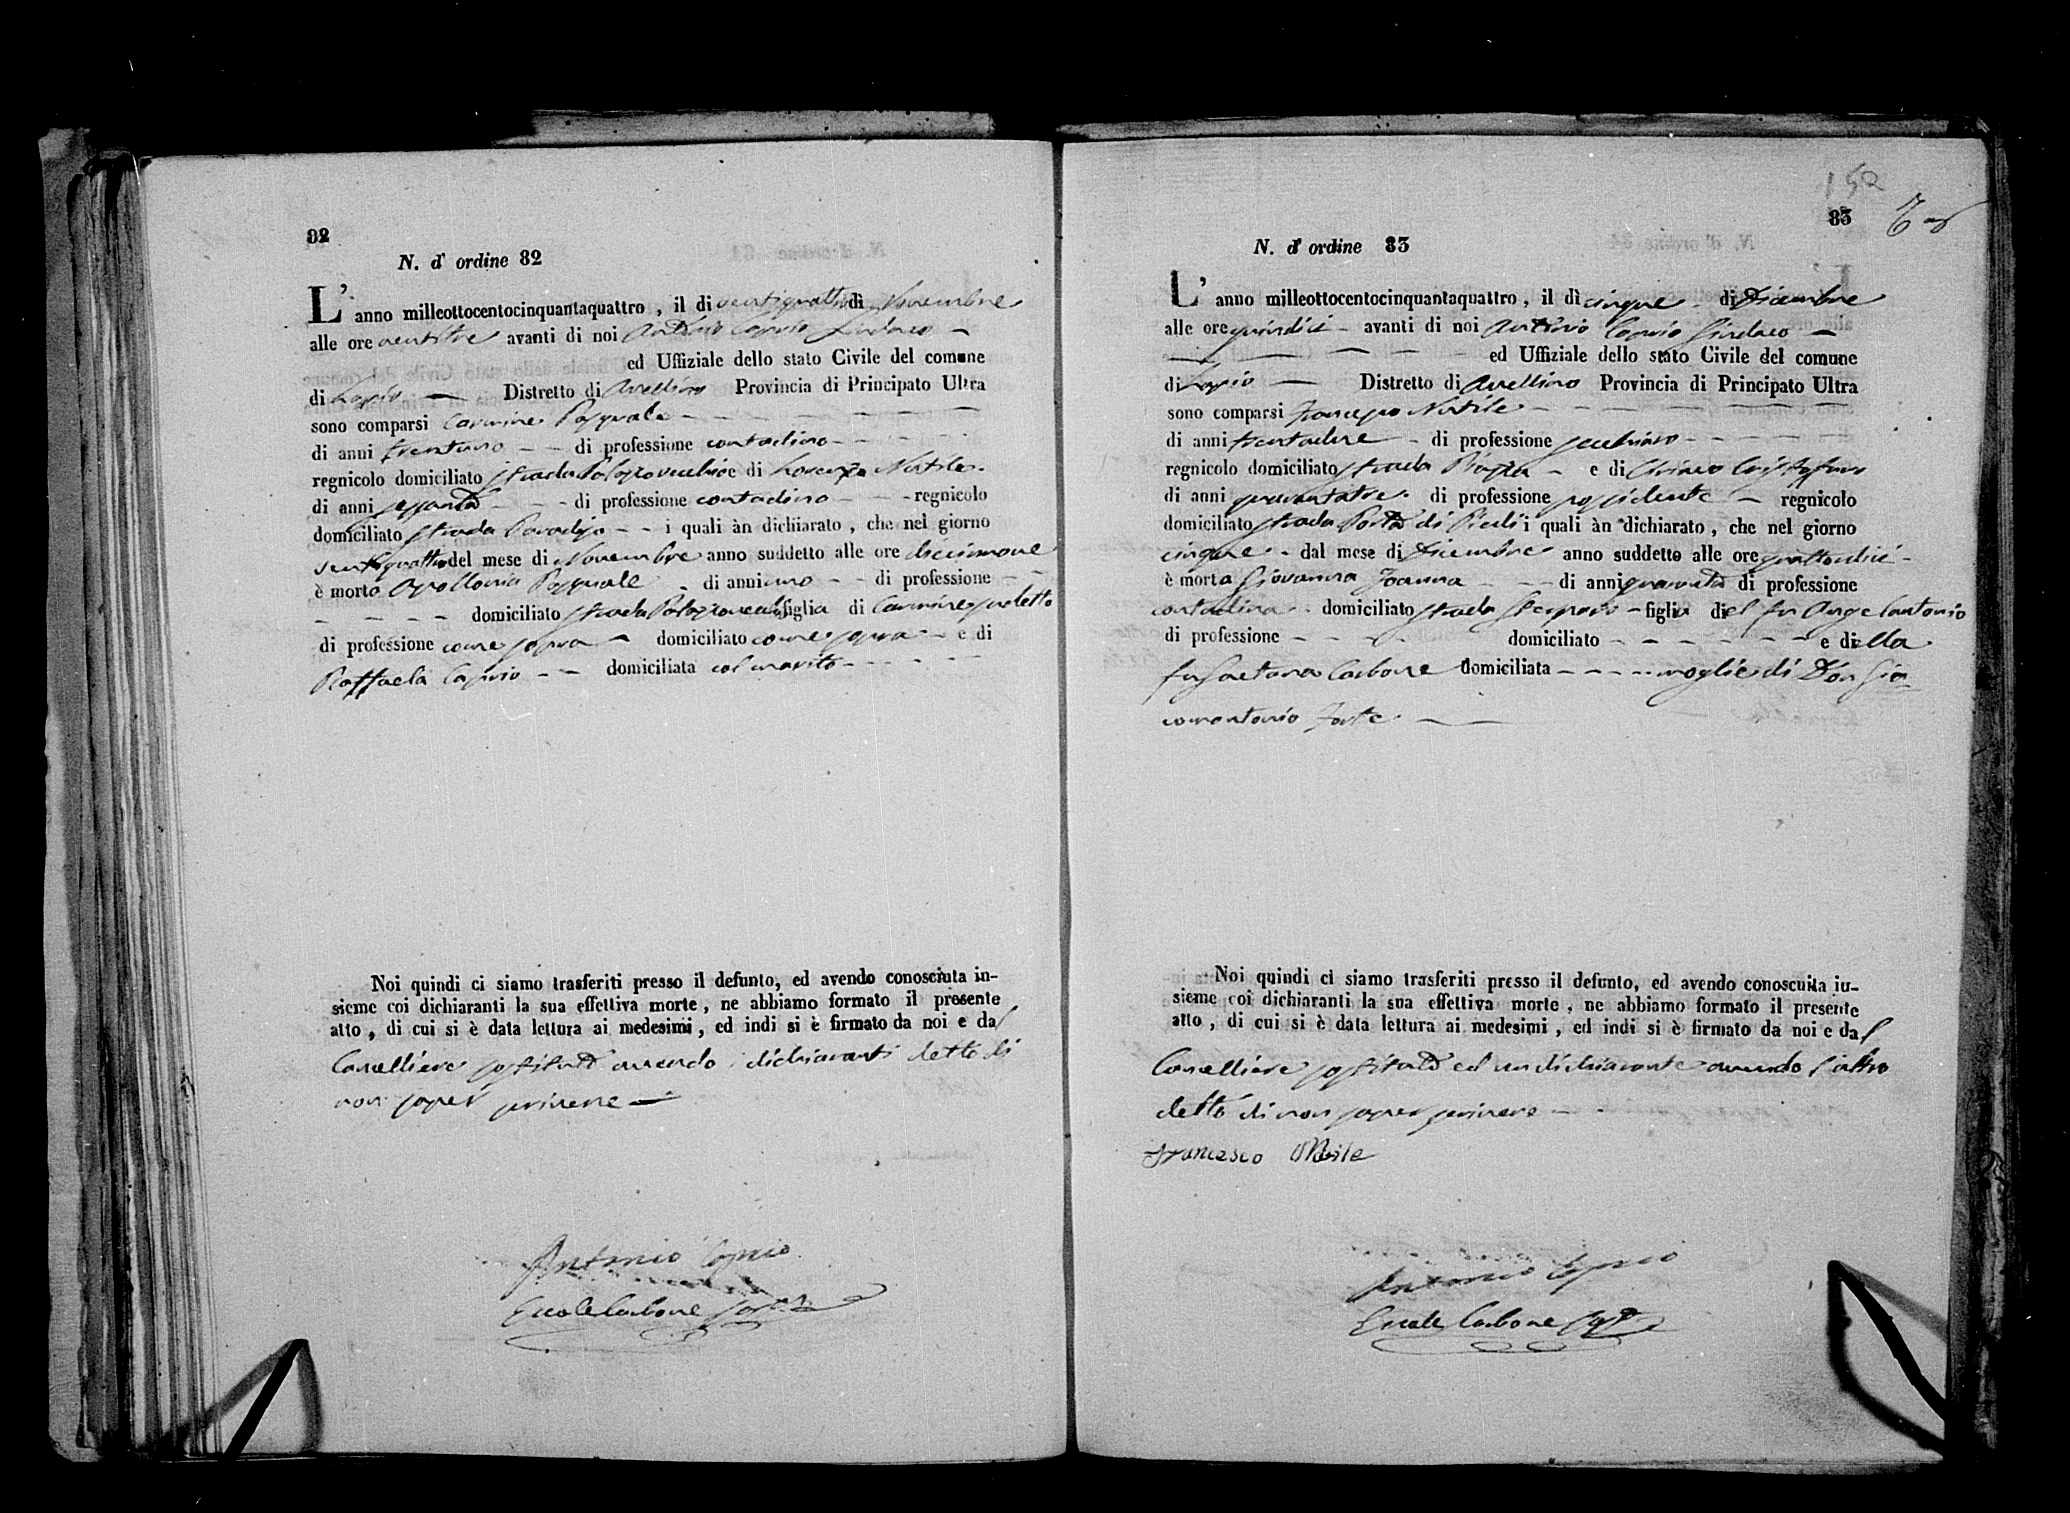 82
N. d' ordine 82
L' anno milleottocentocinquantaquattro, il di ventiquattro di Novembre
alle ore ventitre avanti di noi Antonio Caprio Sindaco
ed Uffiziale dello stato Civile del comune
di Lapio Distretto di Avellino Provincia di Principato Ultra
sono comparsi Carmine Pasquale
di anni trentuno di professione contadino
regnicolo domiciliato strada Palazzovecchio e di Lorenzo Notile
di anni sessanta di professione contadino regnicolo
domiciliato strada Paradiso i quali àn dichiarato, che nel giorno
ventiquattro del mese di Novembre anno suddetto alle ore diecinnove
è morta Apollonia Pasquale di anni uno di professione
domiciliato strada Palazzovecchio figlia di Carmine suddetto
di professione come sopra domiciliato come sopra e di
Raffaela Caprio domiciliata col marito
Noi quindi ci siamo trasferiti presso il defunto, ed avendo conosciuta in-
sieme coi dichiaranti la sua effettiva morte, ne abbiamo formato il presente
atto, di cui si è data lettura ai medesimi, ed indi si è firmato da noi e dal
Cancelliere sostituto avendo i dichiaranti detto di
non saper scrivere
Antonio Caprio
Ercole Carbone Sost.
152
83
N. d' ordine 83
L' anno milleottocentocinquantaquattro, il dì cinque di Dicembre
alle ore quindici avanti di noi Antonio Caprio Sindaco
ed Uffiziale dello stato Civile del comune
di Lapio Distretto di Avellino Provincia di Principato Ultra
sono comparsi Francesco Notile
di anni trentadue di professione
regnicolo domiciliato strada Piazza e di Ciriaco Cristofaro
di anni quarantatre di professione possidente regnicolo
domiciliato strada Porta di Piedi i quali àn dichiarato, che nel giorno
cinque dal mese di Dicembre anno suddetto alle ore quattordici
è morta Giovanna Joanna di anni quaranta di professione
contadina domiciliato strada figlia del fu Angelantonio
di professione domiciliato e della
fu Gaetana Carbone domiciliata moglie di Don Gia-
comantonio Forte
Noi quindi ci siamo trasferiti presso il defunto, ed avendo conosciuta in-
sieme coi dichiaranti la sua effettiva morte, ne abbiamo formato il presente
atto, di cui si è data lettura ai medesimi, ed indi si è firmato da noi e dal
Cancelliere sostituto ed un dichiarante avendo l'altro
detto di non saper scrivere
Francesco Notile
Antonio Caprio
Ercole Carbone Sost.